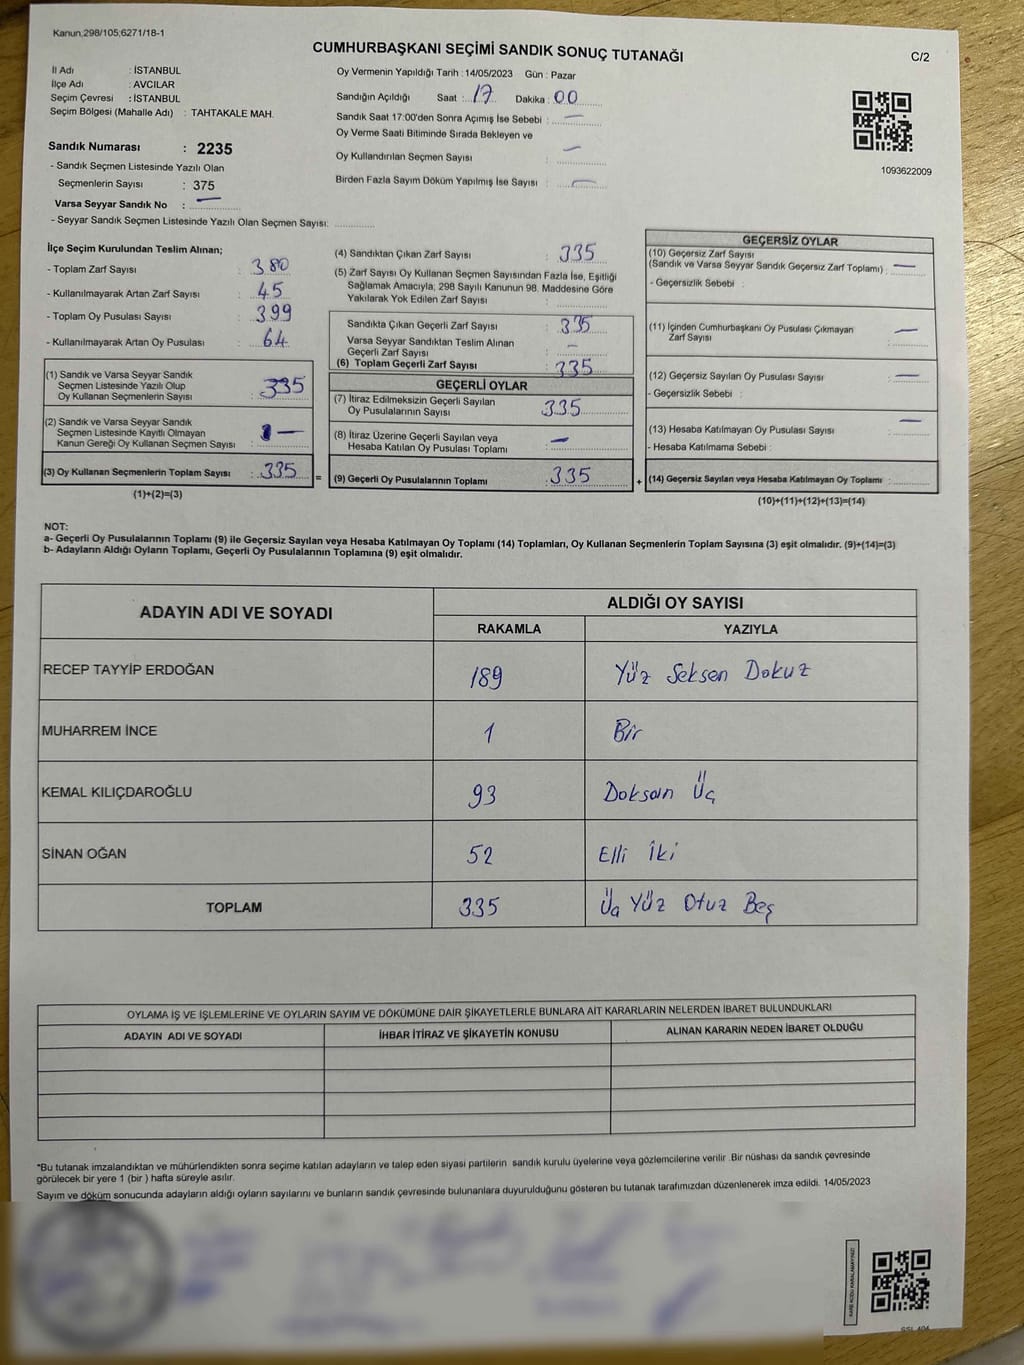 Kanun,298/105;6271/18-1
CUMHURBAŞKANI SEÇİMİ SANDIK SONUÇ TUTANAĞI
C/2
İl Adı : İSTANBUL
İlçe Adı : AVCILAR
Seçim Çevresi : İSTANBUL
Seçim Bölgesi (Mahalle Adı) : TAHTAKALE MAH.
Oy Vermenin Yapıldığı Tarih : 14/05/2023 Gün : Pazar
Sandığın Açıldığı Saat : 17 Dakika : 00
Sandık Saat 17:00'den Sonra Açımış İse Sebebi : —
Oy Verme Saati Bitiminde Sırada Bekleyen ve
Oy Kullandırılan Seçmen Sayısı : —
Birden Fazla Sayım Döküm Yapılmış İse Sayısı : —
1093622009
Sandık Numarası : 2235
- Sandık Seçmen Listesinde Yazılı Olan
Seçmenlerin Sayısı : 375
Varsa Seyyar Sandık No : —
- Seyyar Sandık Seçmen Listesinde Yazılı Olan Seçmen Sayısı:
İlçe Seçim Kurulundan Teslim Alınan;
- Toplam Zarf Sayısı : 380
- Kullanılmayarak Artan Zarf Sayısı : 45
- Toplam Oy Pusulası Sayısı : 399
- Kullanılmayarak Artan Oy Pusulası : 64
(1) Sandık ve Varsa Seyyar Sandık
Seçmen Listesinde Yazılı Olup
Oy Kullanan Seçmenlerin Sayısı : 335
(2) Sandık ve Varsa Seyyar Sandık
Seçmen Listesinde Kayıtlı Olmayan
Kanun Gereği Oy Kullanan Seçmen Sayısı : —
(3) Oy Kullanan Seçmenlerin Toplam Sayısı : 335
(1)+(2)=(3)
(4) Sandıktan Çıkan Zarf Sayısı : 335
(5) Zarf Sayısı Oy Kullanan Seçmen Sayısından Fazla İse, Eşitliği
Sağlamak Amacıyla, 298 Sayılı Kanunun 98. Maddesine Göre
Yakılarak Yok Edilen Zarf Sayısı :
Sandıkta Çıkan Geçerli Zarf Sayısı : 335
Varsa Seyyar Sandıktan Teslim Alınan
Geçerli Zarf Sayısı : —
(6) Toplam Geçerli Zarf Sayısı : 335
GEÇERLİ OYLAR
(7) İtiraz Edilmeksizin Geçerli Sayılan
Oy Pusulalarının Sayısı : 335
(8) İtiraz Üzerine Geçerli Sayılan veya
Hesaba Katılan Oy Pusulası Toplamı : —
= (9) Geçerli Oy Pusulalarının Toplamı : 335
GEÇERSİZ OYLAR
(10) Geçersiz Zarf Sayısı
(Sandık ve Varsa Seyyar Sandık Geçersiz Zarf Toplamı) : —
- Geçersizlik Sebebi :
(11) İçinden Cumhurbaşkanı Oy Pusulası Çıkmayan
Zarf Sayısı : —
(12) Geçersiz Sayılan Oy Pusulası Sayısı : —
- Geçersizlik Sebebi :
(13) Hesaba Katılmayan Oy Pusulası Sayısı : —
- Hesaba Katılmama Sebebi :
+ (14) Geçersiz Sayılan veya Hesaba Katılmayan Oy Toplamı :
(10)+(11)+(12)+(13)=(14)
NOT:
a- Geçerli Oy Pusulalarının Toplamı (9) ile Geçersiz Sayılan veya Hesaba Katılmayan Oy Toplamı (14) Toplamları, Oy Kullanan Seçmenlerin Toplam Sayısına (3) eşit olmalıdır. (9)+(14)=(3)
b- Adayların Aldığı Oyların Toplamı, Geçerli Oy Pusulalarının Toplamına (9) eşit olmalıdır.
ADAYIN ADI VE SOYADI
ALDIĞI OY SAYISI
RAKAMLA YAZIYLA
RECEP TAYYİP ERDOĞAN 189 Yüz Seksen Dokuz
MUHARREM İNCE 1 Bir
KEMAL KILIÇDAROĞLU 93 Doksan Üç
SİNAN OĞAN 52 Elli İki
TOPLAM 335 Üç Yüz Otuz Beş
OYLAMA İŞ VE İŞLEMLERİNE VE OYLARIN SAYIM VE DÖKÜMÜNE DAİR ŞİKAYETLERLE BUNLARA AİT KARARLARIN NELERDEN İBARET BULUNDUKLARI
ADAYIN ADI VE SOYADI
İHBAR İTİRAZ VE ŞİKAYETİN KONUSU
ALINAN KARARIN NEDEN İBARET OLDUĞU
*Bu tutanak imzalandıktan ve mühürlendikten sonra seçime katılan adayların ve talep eden siyasi partilerin sandık kurulu üyelerine veya gözlemcilerine verilir .Bir nüshası da sandık çevresinde
görülecek bir yere 1 (bir ) hafta süreyle asılır.
Sayım ve döküm sonucunda adayların aldığı oyların sayılarını ve bunların sandık çevresinde bulunanlara duyurulduğunu gösteren bu tutanak tarafımızdan düzenlenerek imza edildi. 14/05/2023
KARE KODU KARALAMAYINIZ!